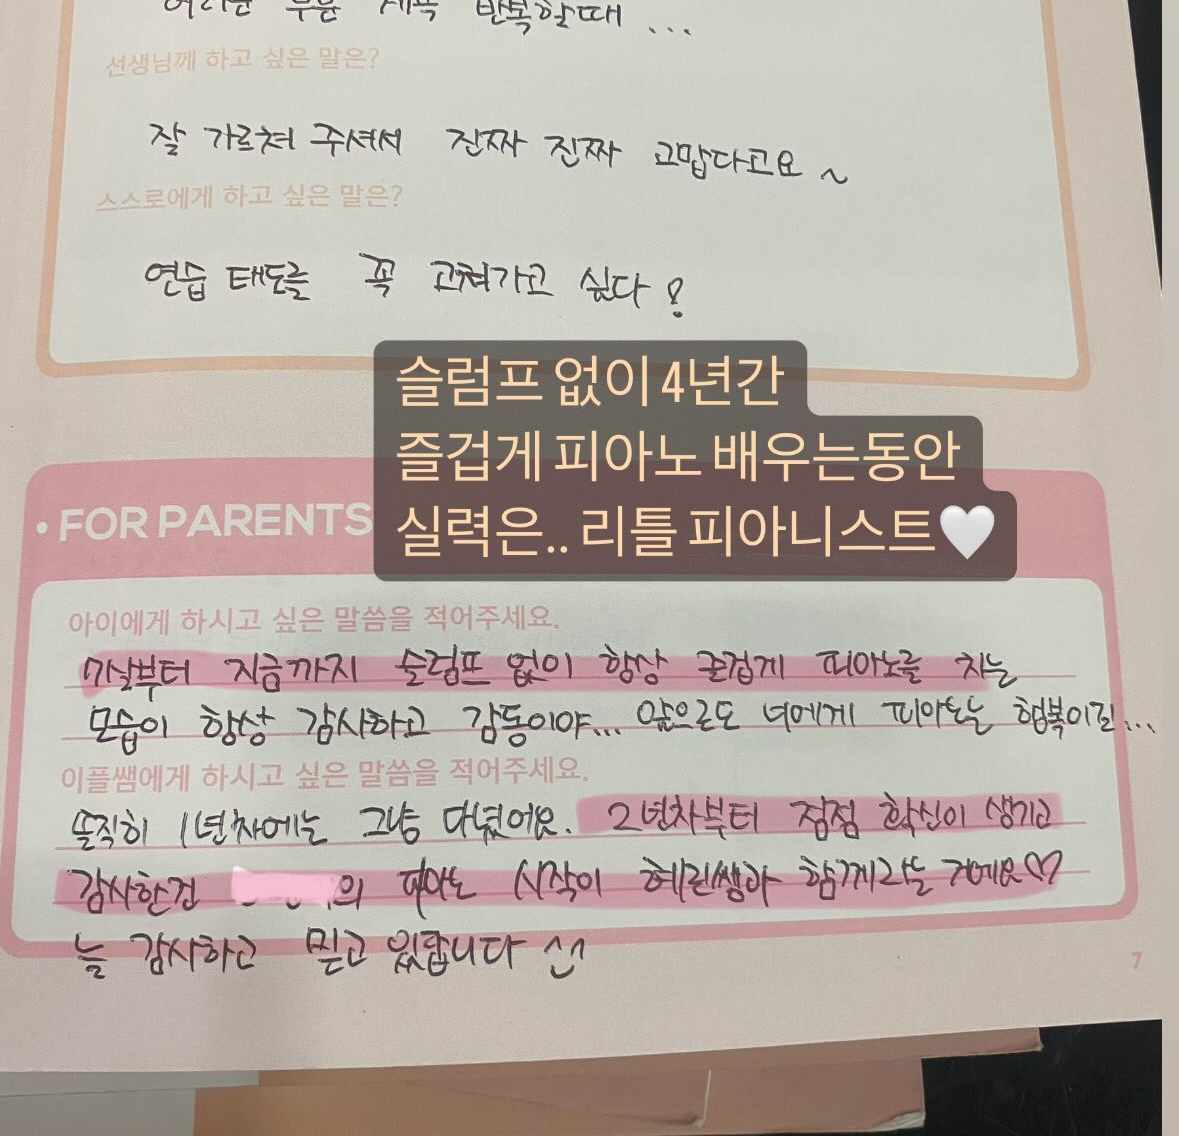 어려운 부분 계속 반복할때 ...
선생님께 하고 싶은 말은?
잘 가르쳐 주셔서 진짜 진짜 고맙다고요~
스스로에게 하고 싶은 말은?
연습 태도를 꼭 고쳐가고 싶다!
슬럼프 없이 4년간
즐겁게 피아노 배우는동안
실력은.. 리틀 피아니스트🤍
• FOR PARENTS
아이에게 하시고 싶은 말씀을 적어주세요.
7살부터 지금까지 슬럼프 없이 항상 즐겁게 피아노를 치는
모습이 항상 감사하고 감동이야... 앞으로도 너에게 피아노는 행복이길...
이플쌤에게 하시고 싶은 말씀을 적어주세요.
솔직히 1년차에는 그냥 다녔어요. 2년차부터 점점 확신이 생기고
감사한건 의 피아노 시작이 혜린쌤과 함께라는 거에요♡
늘 감사하고 믿고 있답니다 ^^
7